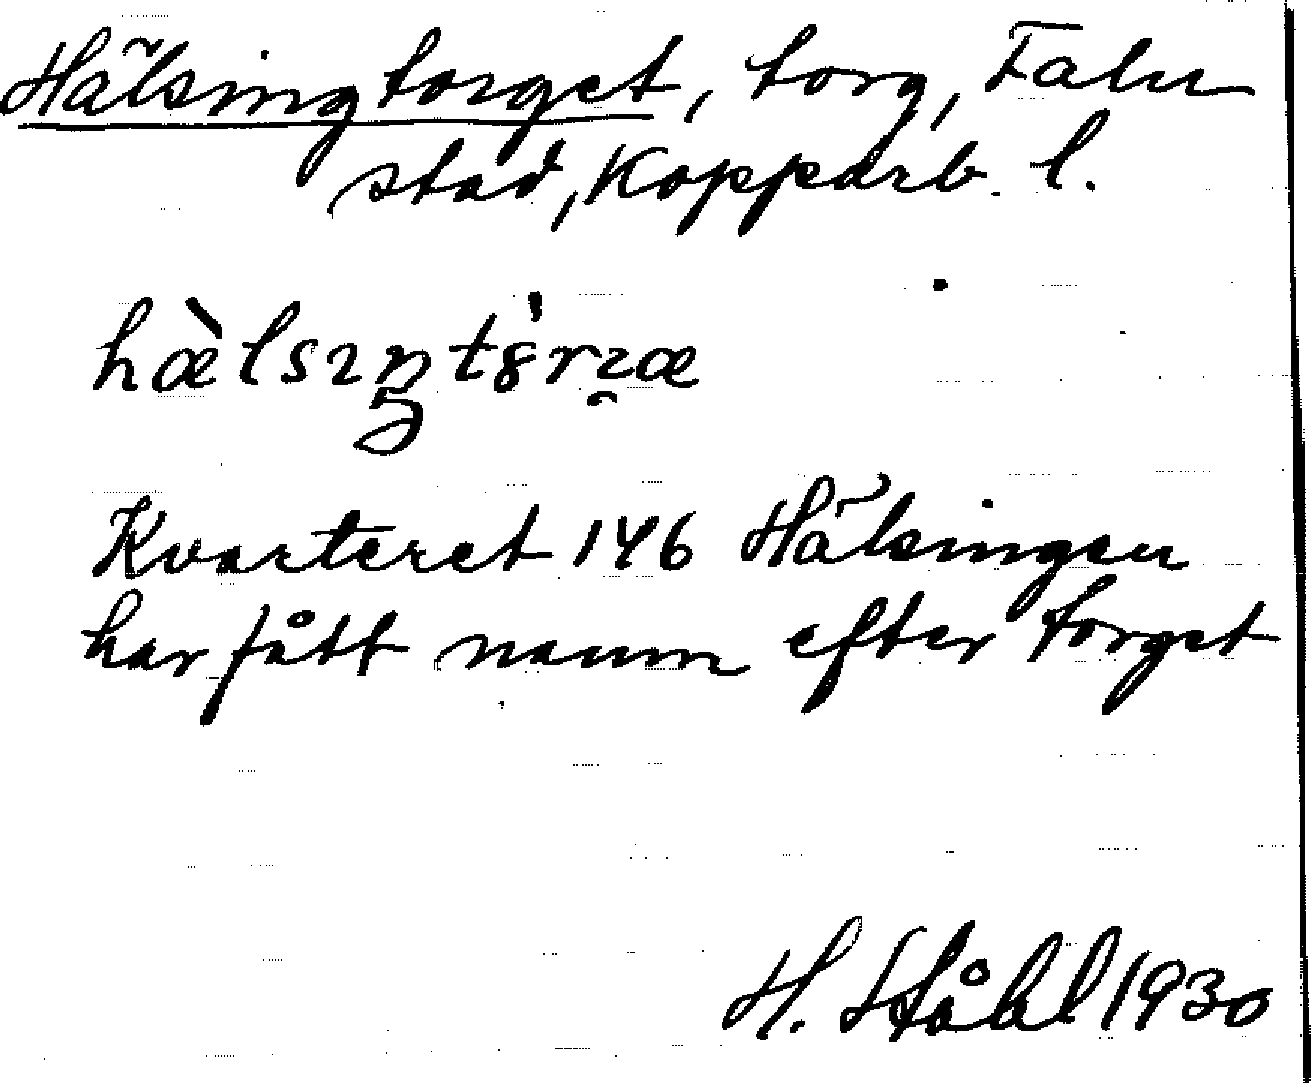 Hälsingtorget, torg, Falu
stad, Kopparb. l.
Kvarteret 146 Hälsingen
har fått namn efter torget
H. Ståhl 1930